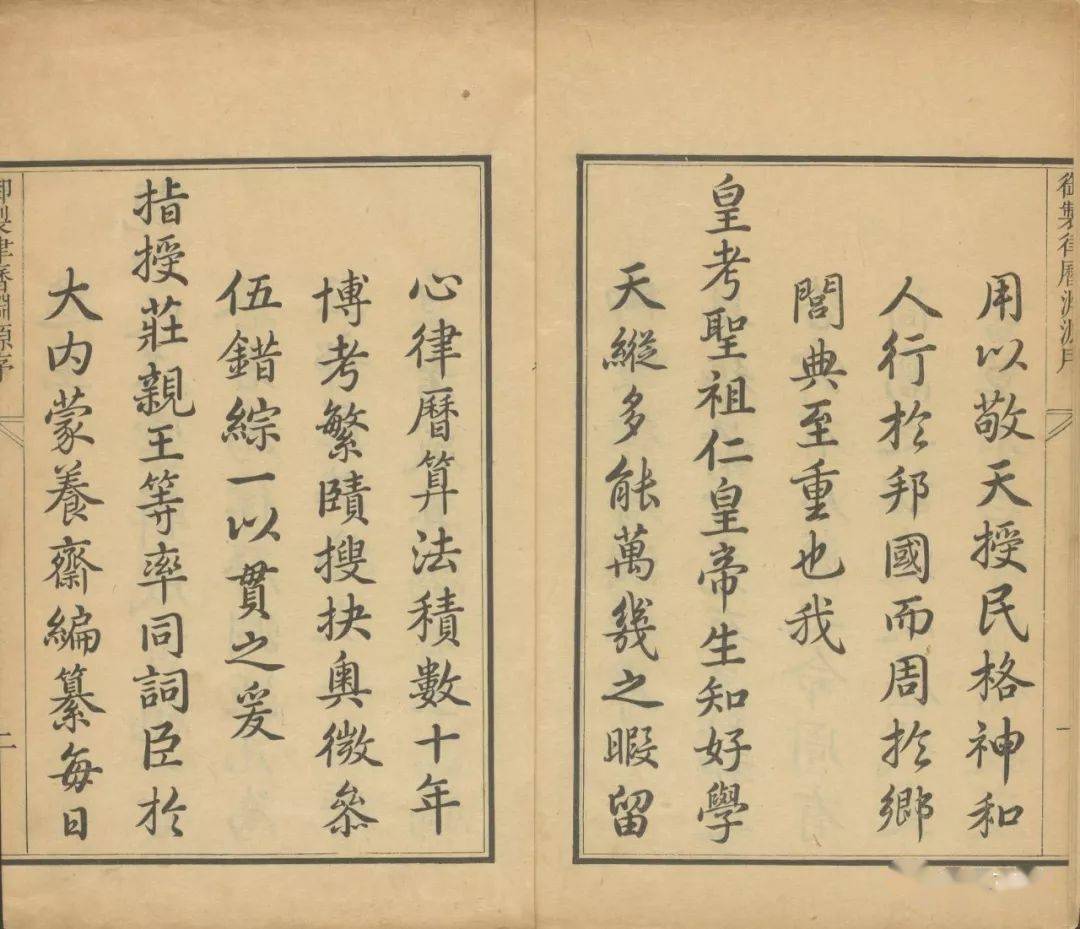 御製律曆淵源序
一
用以敬天授民格神和
人行於邦國而周於鄉
閭典至重也我
皇考聖祖仁皇帝生知好學
天縱多能萬幾之暇留
心律曆算法積數十年
博考繁賾搜抉奧微叅
伍錯綜一以貫之爰
指授莊親王等率同詞臣於
大內蒙養齋編纂每日
御製律曆淵源序
二